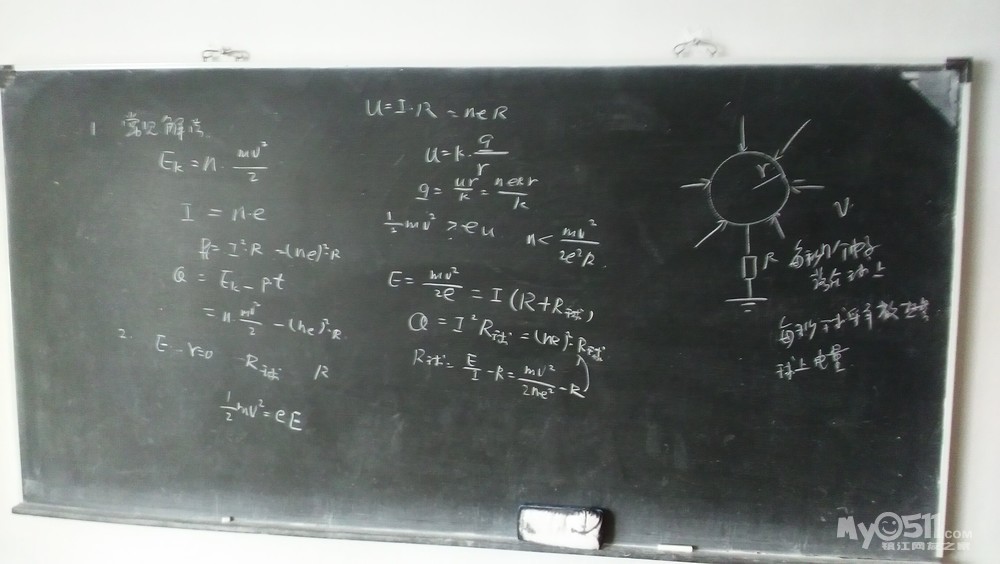 1 常见解法
E_k = n · mv²/2
I = n·e
P_R = I²·R = (ne)²·R
Q = E_k - Pt
= n · mv²/2 - (ne)²·R
2. E - r=0 - R球 R
½mv² = eE
U = I·R = neR
U = k · q/r
q = ur/k = neRr/k
½mv² ≥ eu n < mv²/2e²R
E = mv²/2e = I (R+R球)
Q = I²R球 = (ne)²·R球
R球 = E/I - R = mv²/2ne² - R
r
V
R
每秒n个电子
落在球上
每秒
球上电量
My0511.COM
镇江网友之家